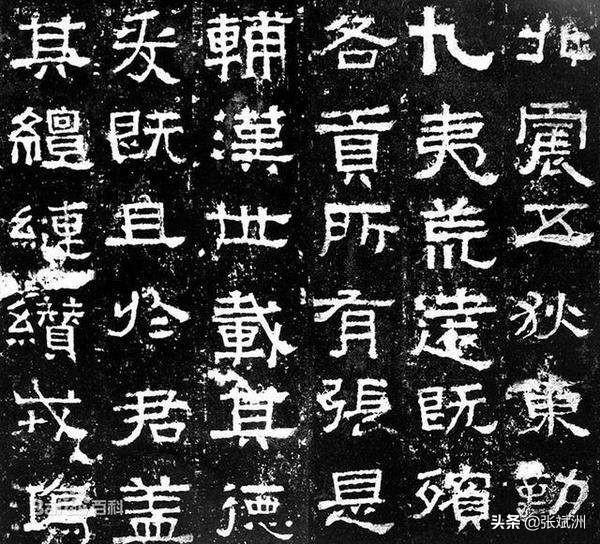 北震五狄東勤
九夷荒遠既殯
各貢所有張是
輔漢世載其德
爰既且於君盖
其繵縺纘戎鴻
百科
头条 @张斌洲